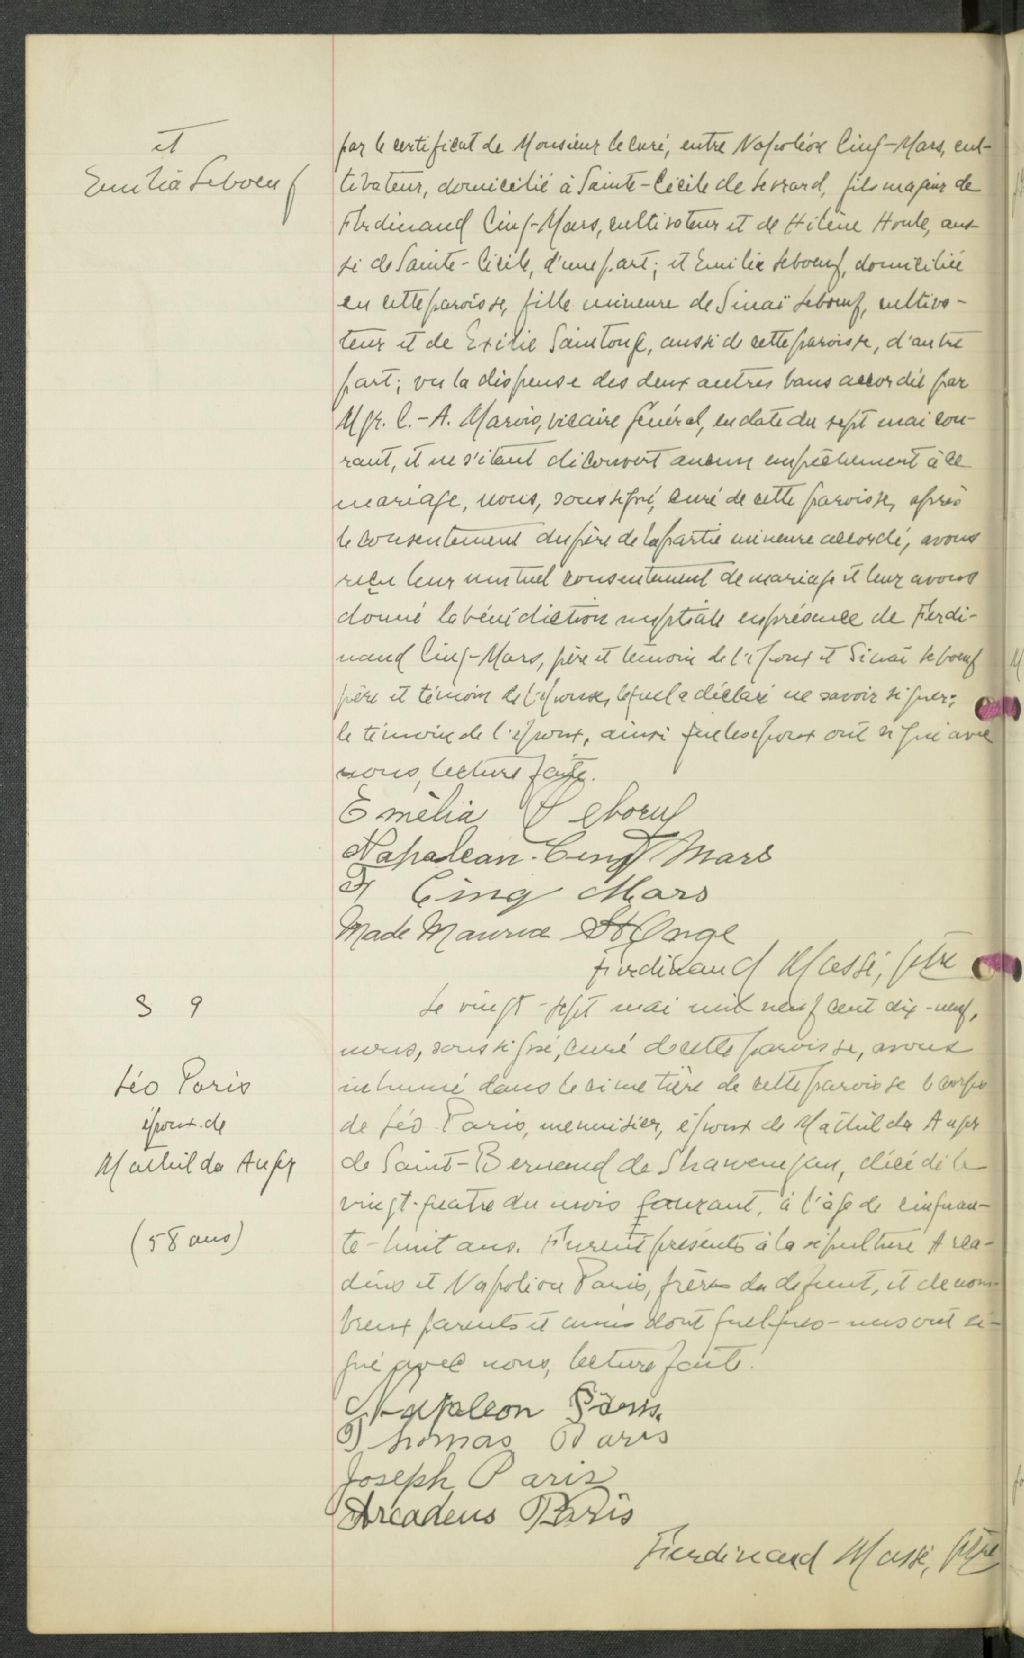 et
Emilia Leboeuf
par le certificat de Monsieur le curé, entre Napoléon Cinq-Mars, cul-
tivateur, domicilié à Sainte-Cécile de Levrard, fils majeur de
Ferdinand Cinq-Mars, cultivateur et de Hélène Houle, aus-
si de Sainte-Cécile, d'une part; et Emilia Leboeuf, domiciliée
en cette paroisse, fille mineure de Sinaï Leboeuf, cultiva-
teur et de Exilie Saintonge, aussi de cette paroisse, d'autre
part; vu la dispense des deux autres bans accordée par
Mgr. C.-A. Marois, vicaire général, en date du sept mai cou-
rant, et ne s'étant découvert aucun empêchement à ce
mariage, nous, soussigné, curé de cette paroisse, après
le consentement du père de la partie mineure accordé, avons
reçu leur mutuel consentement de mariage et leur avons
donné la bénédiction nuptiale en présence de Ferdi-
nand Cinq-Mars, père et témoin de l'époux et Sinaï Leboeuf
père et témoin de l'épouse, lequel a déclaré ne savoir signer;
le témoin de l'époux, ainsi que les époux ont signé avec
nous, lecture faite.
Emélia Leboeuf
Napolean Cinq Mars
F Cinq Mars
Made Maurice St Onge
Ferdinand Massé, ptre
S 9
Léo Paris
époux de
Mathilda Auger
(58 ans)
Le vingt-sept mai mil neuf cent dix-neuf,
nous, soussigné, curé de cette paroisse, avons
inhumé dans le cimetière de cette paroisse le corps
de Léo Paris, menuisier, époux de Mathilda Auger
de Saint-Bernard de Shawenegan, décédé le
vingt-quatre du mois courant, à l'âge de cinquan-
te-huit ans. Furent présents à la sépulture Arca-
dius et Napoléon Paris, frères du defunt, et de nom-
breux parents et amis dont quelques-uns ont si-
gné avec nous, lecture faite.
Napoleon Paris.
Thomas Paris
Joseph Paris
Arcadeus Paris
Ferdinand Massé, ptre